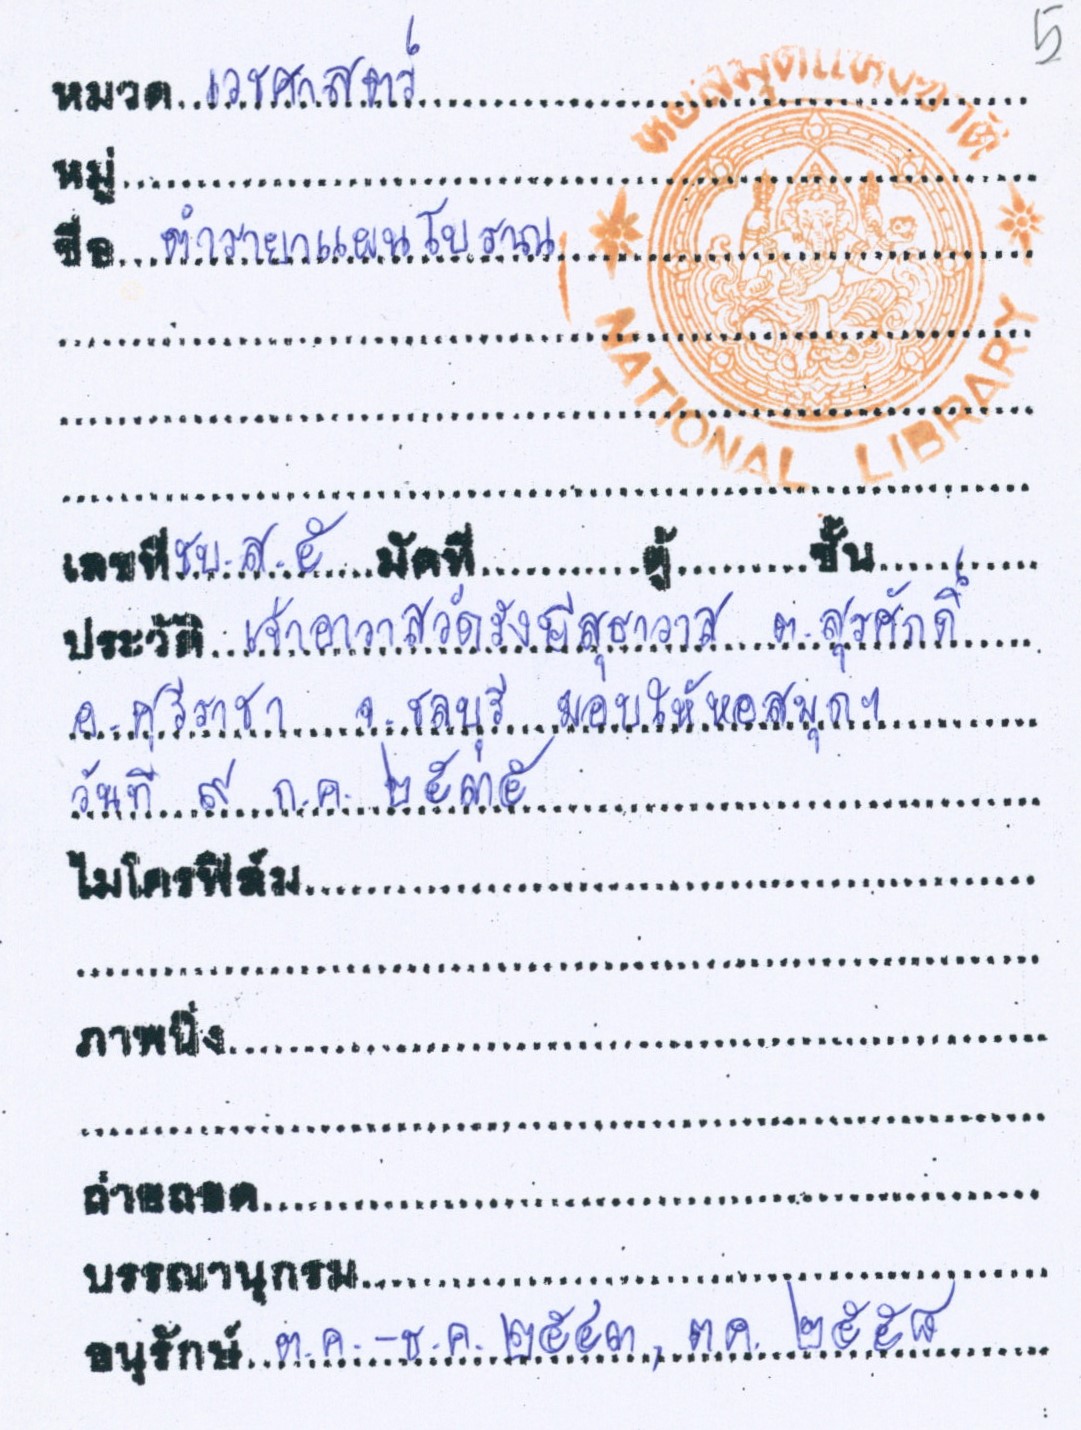 5
หอสมุดแห่งชาติ
หมวด เวชศาสตร์
หมู่
ชื่อ ตำรายาแผนโบราณ
NATIONAL LIBRARY
เลขที่ ชบ.ส.๕ มัดที่ ตู้ ชั้น
ประวัติ เจ้าอาวาสวัดรังษีสุธาวาส ต.สุรศักดิ์
อ.ศรีราชา จ.ชลบุรี มอบให้หอสมุดฯ
วันที่ ๙ ก.ค. ๒๕๓๕
ไมโครฟิล์ม
ภาพนิ่ง
ถ่ายถอด
บรรณานุกรม
อนุรักษ์ ต.ค.-ธ.ค. ๒๕๔๓, ต.ค. ๒๕๕๘